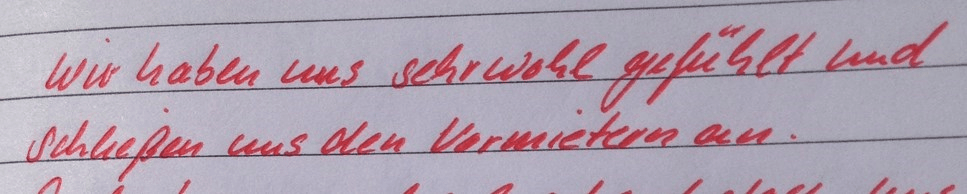 Wir haben uns sehr wohl gefühlt und
schließen uns den Vermietern an.